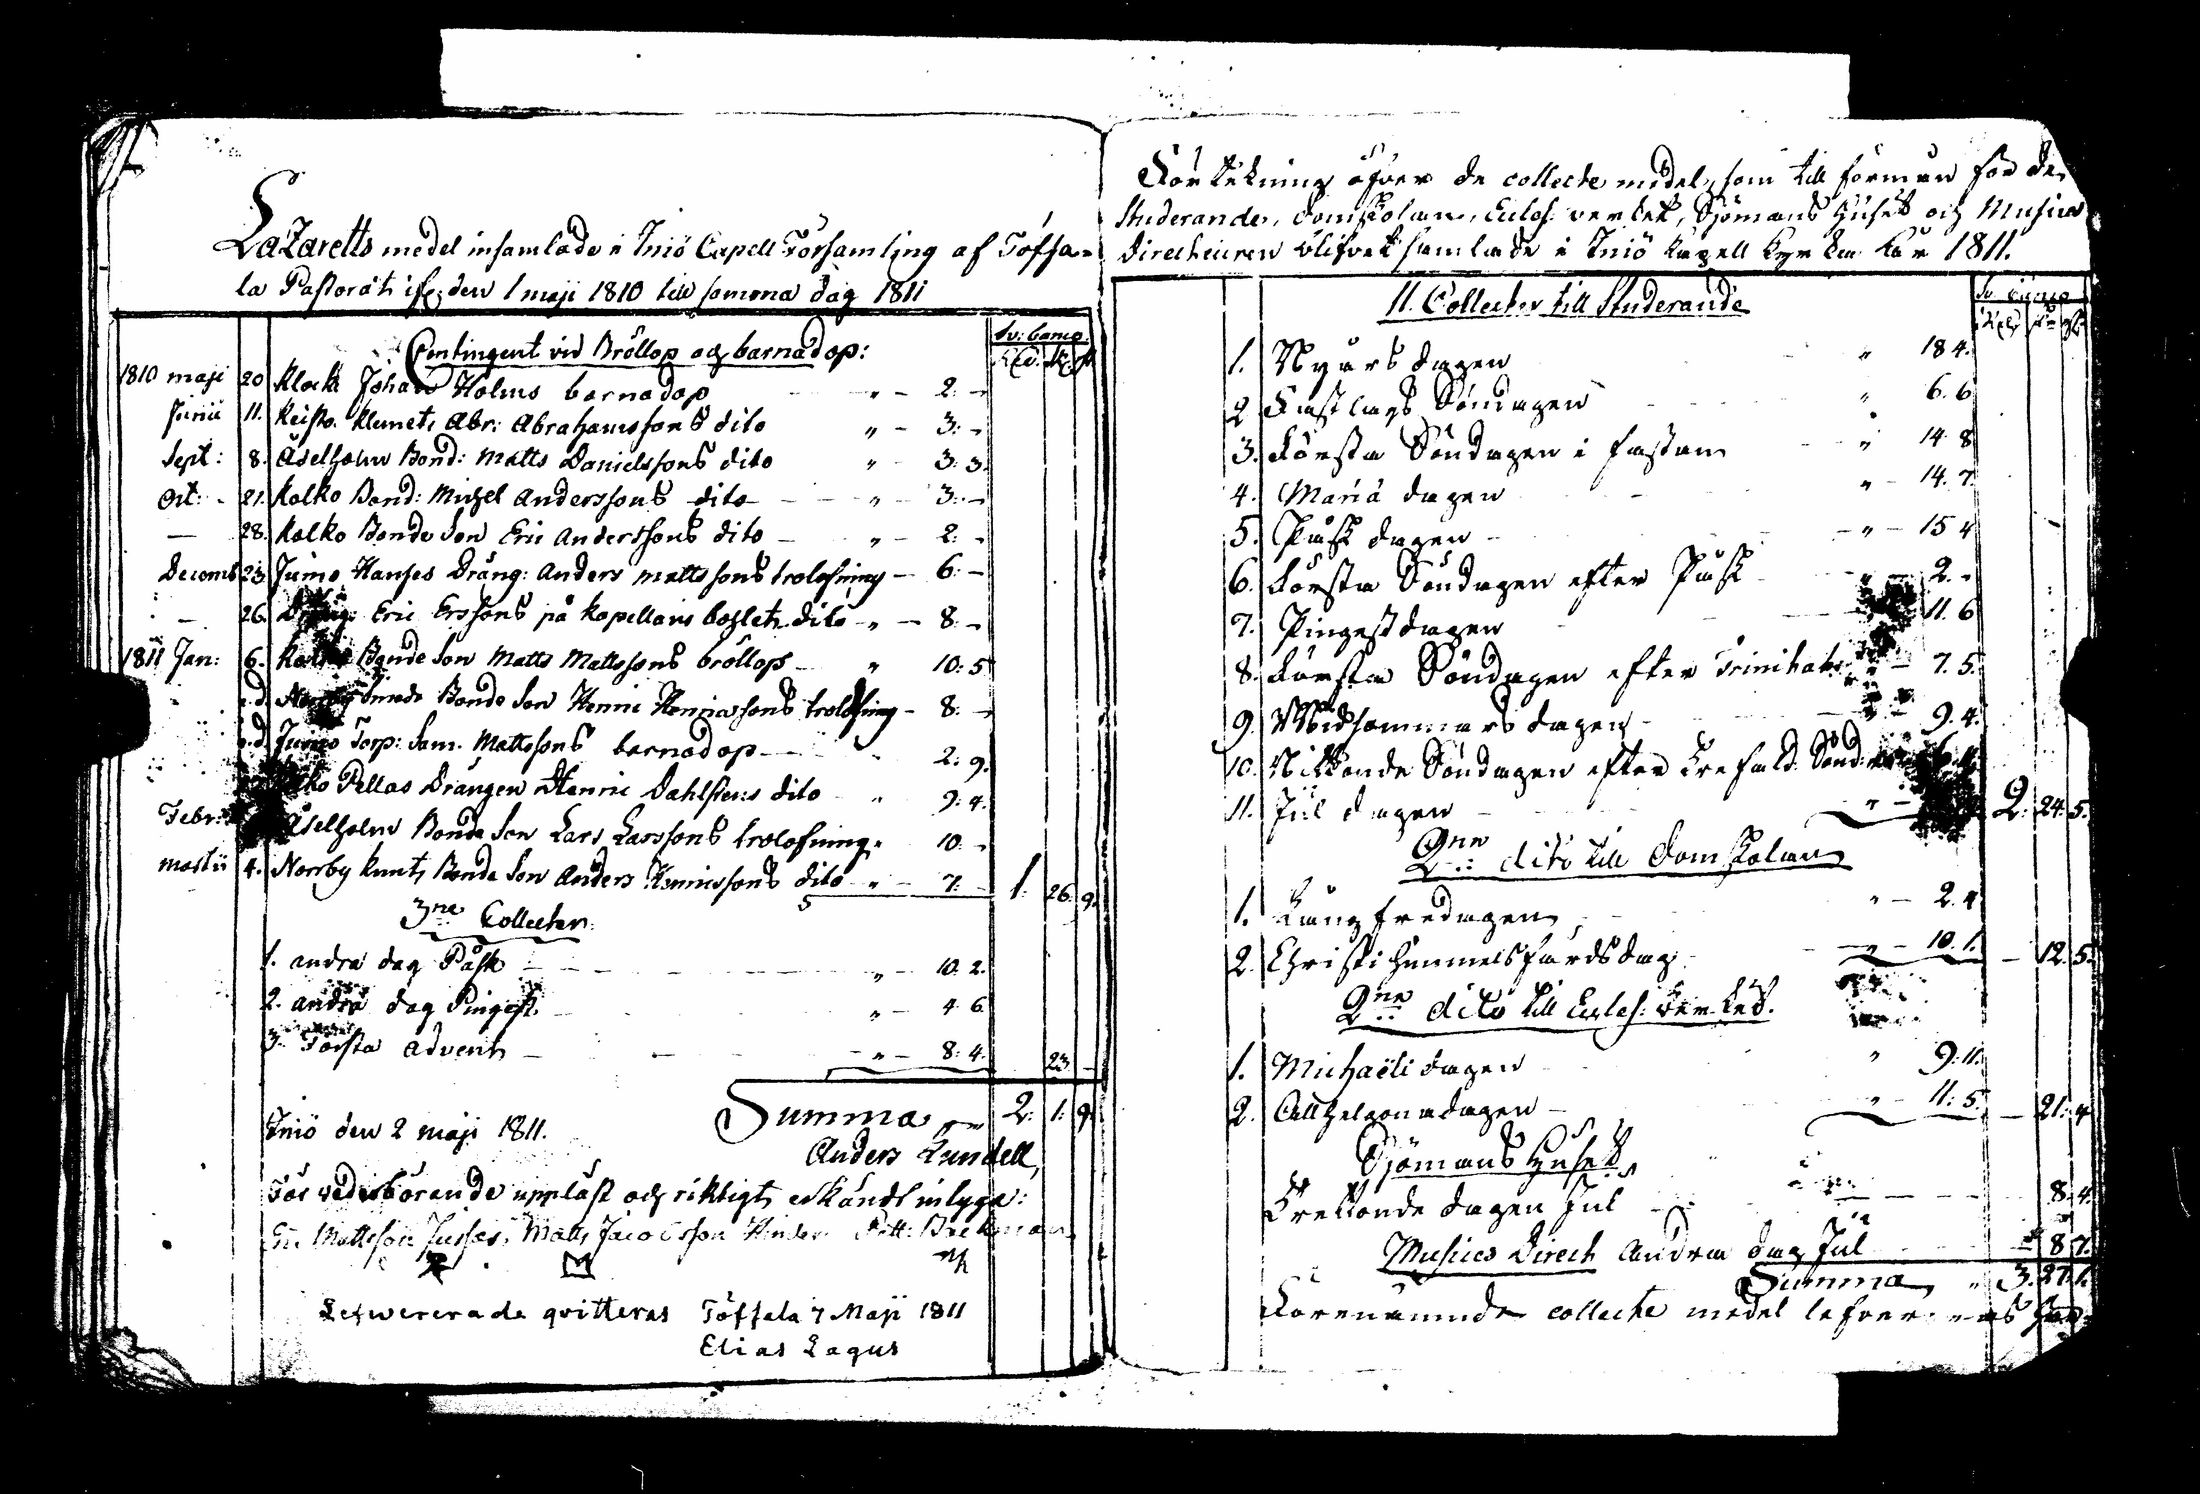 Lazaretts medel insamlade i Iniö Capell Församling af Töfsa=
la Pastorat ifr: den 1 maji 1810 till samma dag 1811
Contingent vid Bröllop och barnadop:
Sv: banco.
1810 maji 20 klock Johan Holms barnadop " - 2: -
Junii 11. keisto klemets Abr: Abrahamssons dito " - 3: -
Sept: 8. Åselholm Bond: Matts Danielssons dito " - 3: 3.
Oct: - 21. kolko Bond: Michel Anderssons dito " - 3: -
— 28. kolko Bonde Son Eric Anderssons dito - " - 2: -
Decemb 23. Jumo Hanses Dräng: Anders Mattssons trolofning - 6: -
— 26. Dräng: Eric Erssons på kapellans bohlet dito " - 8: -
1811 Jan: 6. Bonde Son Matts Mattssons bröllop - " 10: 5
e.d. Bonde Son Henric Henricssons trolofning - 8: -
e.d. Jumo Torp: Sam. Mattssons barnadop - 2: 9.
Pellas Drängen Henric Dahlstens dito " 9: 4.
Febr: Åselholm Bonde Son Lars Larssons trolofning " 10. -
martii 4. Norrby knuts Bonde Son Anders Henricssons dito " - 7: - 1: 26. 9.
3ne Collecter:
1. andra dag Påsk - " - 10. 2.
2. andra dag Pingst. - " - 4 6
3. Första Advent - " - 8: 4. 23. -
Summa 2: 1: 9.
Iniö den 2 maji 1811.
Anders Lundell
För vederbörande uppläst och riktigt erkändt intyga:
Eric Mattsson Matts Jacobsson
Lefwererade qvitteras Töfsala 7 Maji 1811
Elias Lagus
Förtekning öfver de collecte medel, som till förmån för de
Studerande, domskolan, Eccles: verket, Sjömans Huset och Musices
Directeuren blifvit samlade i Iniö kapell kyrka år 1811.
11. Collecter till Studerande
1. Nyårs dagen " 18 4.
2 Fastlags Söndagen " 6. 6
3. Första Söndagen i fastan " 14 8
4. Mariä dagen " - 14. 7.
5. Påsk dagen - " - 15 4
6. Första Söndagen efter Påsk 2. -
7. Pingest dagen 11. 6
8. Första Söndagen efter Trinitatis - 7. 5.
9. Midsommars dagen - 9. 4.
10. Nittonde Söndagen efter Trefald: Sönd:
11. Jul dagen - 2: 24. 5.
2ne dito till Domskolan
1. Lång fredagen " - 2. 4
2. Christi Himmelsfärds dag - " - 10. 1. - 12. 5.
2ne dito till Eccles: verket.
1. Michaëli dagen " 9: 11.
2. Allhelgona dagen - " - 11: 5. - 21. 4
Sjömans Huset
Trettonde dagen Jul 8. 4.
Musices Direct Andra dag Jul 8 7.
Summa " 3. 27. 1.
Förenämnde collecte medel